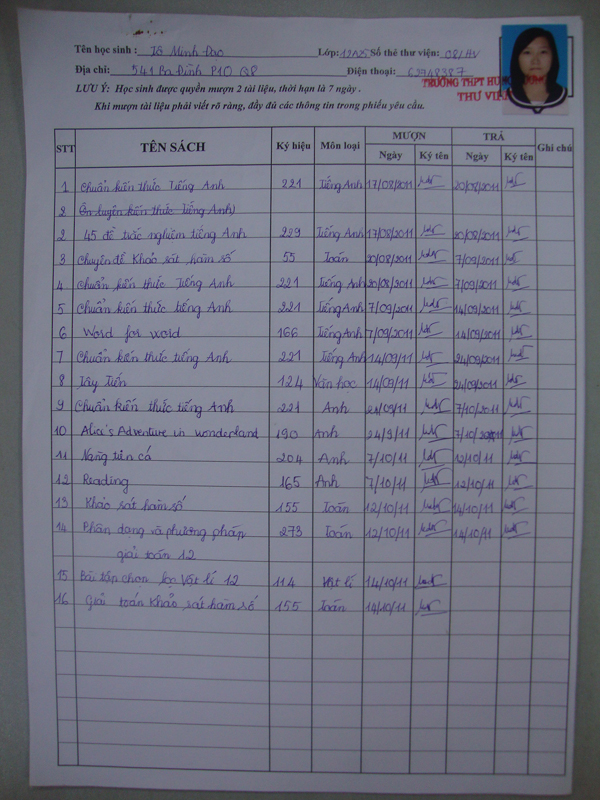 Tên học sinh : Tô Minh Đạo Lớp: Số thẻ thư viện:
Địa chỉ: 541 Ba Đình P10 Q8 Điện thoại:
TRƯỜNG THPT
THƯ VIỆN
LƯU Ý: Học sinh được quyền mượn 2 tài liệu, thời hạn là 7 ngày .
Khi mượn tài liệu phải viết rõ ràng, đầy đủ các thông tin trong phiếu yêu cầu.
STT TÊN SÁCH Ký hiệu Môn loại MƯỢN TRẢ Ghi chú
Ngày Ký tên Ngày Ký tên
1 Chuẩn kiến thức Tiếng Anh 221 Tiếng Anh 17/08/2011 20/08/2011
2 Ôn luyện kiến thức Tiếng Anh
2 45 đề trắc nghiệm tiếng Anh 229 Tiếng Anh 17/08/2011 20/08/2011
3 Chuyên đề Khảo sát hàm số 55 Toán 20/08/2011 7/09/2011
4 Chuẩn kiến thức Tiếng Anh 221 Tiếng Anh 20/08/2011 7/09/2011
5 Chuẩn kiến thức tiếng Anh 221 Tiếng Anh 7/09/2011 14/09/2011
6 Word for word 166 Tiếng Anh 7/09/2011 14/09/2011
7 Chuẩn kiến thức tiếng Anh 221 Tiếng Anh 14/09/11 24/09/2011
8 Tây Tiến 124 Văn học 14/09/11 24/09/2011
9 Chuẩn kiến thức tiếng Anh 221 Anh 24/09/11 7/10/2011
10 Alice's Adventure in wonderland 190 Anh 24/9/11 7/10/2011
11 Nàng tiên cá 204 Anh 7/10/11 12/10/11
12 Reading 165 Anh 7/10/11 12/10/11
13 Khảo sát hàm số 155 Toán 12/10/11 14/10/11
14 Phân dạng và phương pháp 273 Toán 12/10/11 14/10/11
giải toán 12
15 Bài tập chọn lọc Vật lí 12 114 Vật lí 14/10/11
16 Giải toán Khảo sát hàm số 155 Toán 14/10/11